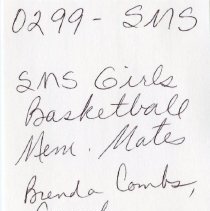 0299 - SMS
SMS Girls
Basketball
Mem. Mates
Brenda Combs,